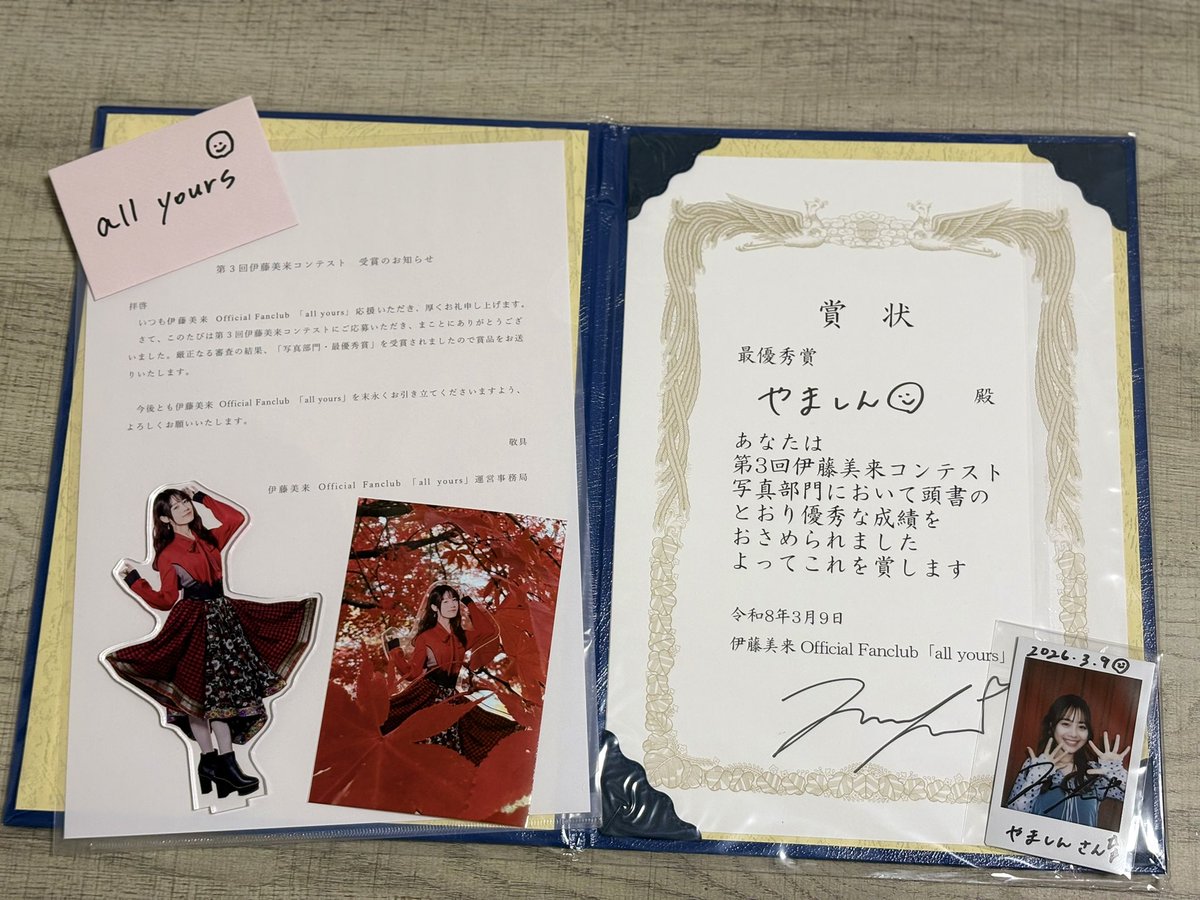 all yours
第3回伊藤美来コンテスト　受賞のお知らせ
拝啓
いつも伊藤美来 Official Fanclub 「all yours」応援いただき、厚くお礼申し上げます。
さて、このたびは第3回伊藤美来コンテストにご応募いただき、まことにありがとうござ
いました。厳正なる審査の結果、「写真部門・最優秀賞」を受賞されましたので賞品をお送
りいたします。
今後とも伊藤美来 Official Fanclub 「all yours」を末永くお引き立てくださいますよう、
よろしくお願いいたします。
敬具
伊藤美来 Official Fanclub 「all yours」運営事務局
賞状
最優秀賞
やましん 殿
あなたは
第3回伊藤美来コンテスト
写真部門において頭書の
とおり優秀な成績を
おさめられました
よってこれを賞します
令和8年3月9日
伊藤美来 Official Fanclub「all yours」
2026.3.9
やましんさん